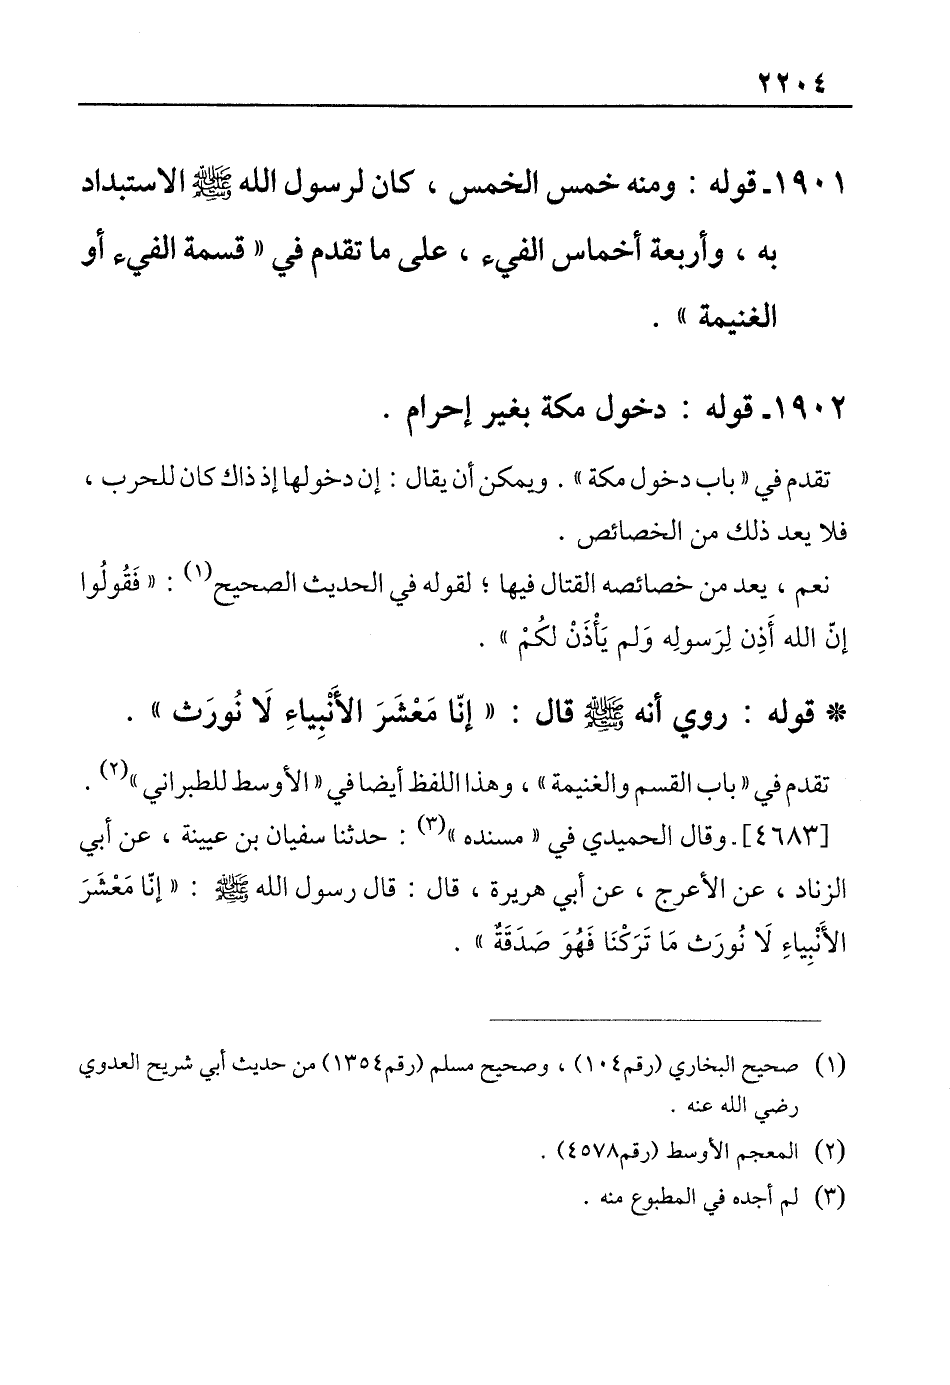 ٢٢٠٤
١٩٠١ـ قوله : ومنه خمس الخمس ، كان لرسول الله ﷺ الاستبداد
به ، وأربعة أخماس الفيء ، على ما تقدم في « قسمة الفيء أو
الغنيمة » .
١٩٠٢ـ قوله : دخول مكة بغير إحرام .
تقدم في « باب دخول مكة » . ويمكن أن يقال : إن دخولها إذ ذاك كان للحرب ،
فلا يعد ذلك من الخصائص .
نعم ، يعد من خصائصه القتال فيها ؛ لقوله في الحديث الصحيح(١) : « فَقُولُوا
إنّ الله أَذِن لِرَسولِه وَلم يَأْذَنْ لكُمْ » .
* قوله : روي أنه ﷺ قال : « إنّا مَعْشَرَ الأَنْبِياءِ لَا نُورَث » .
تقدم في « باب القسم والغنيمة » ، وهذا اللفظ أيضا في « الأوسط للطبراني »(٢) .
[٤٦٨٣]. وقال الحميدي في « مسنده »(٣) : حدثنا سفيان بن عيينة ، عن أبي
الزناد ، عن الأعرج ، عن أبي هريرة ، قال : قال رسول الله ﷺ : « إنّا مَعْشَرَ
الأَنْبِياءِ لَا نُورَث مَا تَرَكْنَا فَهُوَ صَدَقَةٌ » .
(١) صحيح البخاري (رقم١٠٤) ، وصحيح مسلم (رقم١٣٥٤) من حديث أبي شريح العدوي
رضي الله عنه .
(٢) المعجم الأوسط (رقم٤٥٧٨) .
(٣) لم أجده في المطبوع منه .